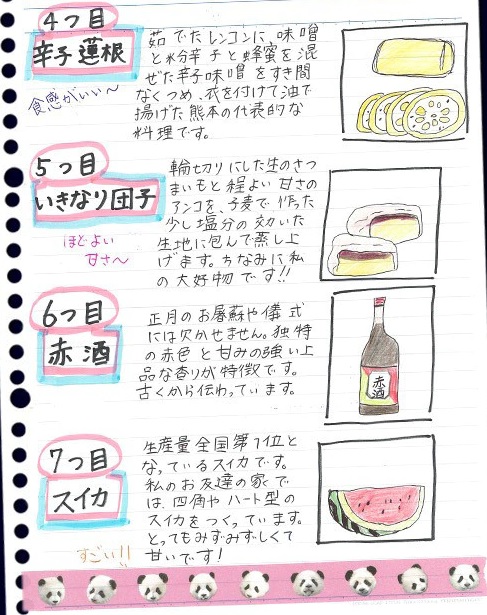 4つ目
辛子蓮根
食感がいい〜
茹でたレンコンに、味噌
と粉辛子と蜂蜜を混
ぜた辛子味噌をすき間
なくつめ、衣を付けて油で
揚げた熊本の代表的な
料理です。
5つ目
いきなり団子
ほどよい
甘さ〜
輪切りにした生のさつ
まいもと程よい甘さの
アンコを、小麦で作った
少し塩分の効いた
生地に包んで蒸し上
げます。ちなみに私
の大好物です!!
6つ目
赤酒
正月のお屠蘇や儀式
には欠かせません。独特
の赤色と甘みの強い上
品な香りが特徴です。
古くから伝わっています。
赤
酒
7つ目
スイカ
すごい!!
生産量全国第1位と
なっているスイカです。
私のお友達の家で
は、四角やハート型の
スイカをつくっています。
とってもみずみずしくて
甘いです!